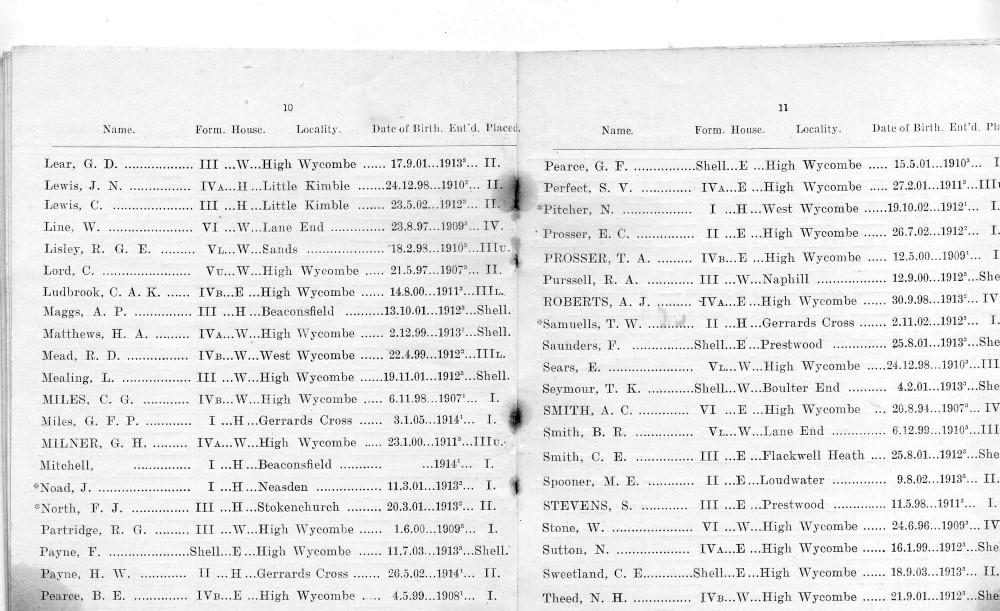 10
Name. Form. House. Locality. Date of Birth. Ent'd. Placed.
Lear, G. D. ................. III ...W...High Wycombe ...... 17.9.01...1913³... II.
Lewis, J. N. ................. IVA...H ...Little Kimble .......24.12.98...1910²... II.
Lewis, C. ..................... III ...H ...Little Kimble ....... 23.5.02...1912³... II.
Line, W. ...................... VI ...W...Lane End ............. 23.8.97...1909³... IV.
Lisley, R. G. E. ............. VL...W...Sands ................... 18.2.98...1910³...IIIU.
Lord, C. ...................... VU...W...High Wycombe ...... 21.5.97...1907³... II.
Ludbrook, C. A. K. ....... IVB...E ...High Wycombe ...... 14.8.00...1911³...IIIL.
Maggs, A. P. ................ III ...H ...Beaconsfield ..........13.10.01...1912³...Shell.
Matthews, H. A. .......... IVA...W...High Wycombe ...... 2.12.99...1913¹...Shell.
Mead, R. D. ................. IVB...W...West Wycombe ...... 22.4.99...1912²...IIIL.
Mealing, L. .................. III ...W...High Wycombe ......19.11.01...1912³...Shell.
MILES, C. G. ................ IVB...W...High Wycombe ...... 6.11.98...1907¹... I.
Miles, G. F. P. .............. I ...H ...Gerrards Cross ....... 3.1.05...1914¹... I.
MILNER, G. H. ............. IVA...W...High Wycombe ...... 23.1.00...1911³...IIIU.
Mitchell, ............... I ...H ...Beaconsfield .......... ...1914¹... I.
*Noad, J. ...................... I ...H ...Neasden ................ 11.3.01...1913³... I.
*North, F. J. ................. III ...H ...Stokenchurch ........ 20.3.01...1913³... II.
Partridge, R. G. ........... III ...W...High Wycombe ...... 1.6.00...1909³... I.
Payne, F. ...................Shell...E ...High Wycombe ...... 11.7.03...1913³...Shell.
Payne, H. W. .............. II ...H ...Gerrards Cross ....... 26.5.02...1914¹... II.
Pearce, B. E. ............... IVB...E ...High Wycombe ...... 4.5.99...1908¹... I.
11
Name. Form. House. Locality. Date of Birth. Ent'd. Pl
Pearce, G. F. ...............Shell...E ...High Wycombe ..... 15.5.01...1910³... I
Perfect, S. V. ............... IVA...E ...High Wycombe ..... 27.2.01...1911³...IIIU
*Pitcher, N. .................. I ...H ...West Wycombe .....19.10.02...1912¹... I.
Prosser, E. C. .............. II ...E ...High Wycombe ..... 26.7.02...1912³... I.
PROSSER, T. A. ............ IVB...E ...High Wycombe ..... 12.5.00...1909¹... I
Purssell, R. A. ............. III ...W...Naphill ................ 12.9.00...1912³...She
ROBERTS, A. J. ............ IVA...E ...High Wycombe ..... 30.9.98...1913³... IV
*Samuells, T. W. ........... II ...H ...Gerrards Cross ...... 2.11.02...1912³... I.
Saunders, F. ...............Shell...E ...Prestwood ............ 25.8.01...1913³...She
Sears, E. ..................... VL...W...High Wycombe .....24.12.98...1910³...III
Seymour, T. K. ...........Shell...W...Boulter End .......... 4.2.01...1913³...She
SMITH, A. C. ............... VI ...E ...High Wycombe ... 20.8.94...1907³... IV
Smith, B. R. ................ VL...W...Lane End ............. 6.12.99...1910³...III
Smith, C. E. ................ III ...E ...Flackwell Heath .... 25.8.01...1912³...She
Spooner, M. E. ............ II ...E ...Loudwater ............ 9.8.02...1913³... II
STEVENS, S. ................ III ...E ...Prestwood ............ 11.5.98...1911³... I
Stone, W. .................... VI ...W...High Wycombe ...... 24.6.96...1909³... IV
Sutton, N. ................... IVA...E ...High Wycombe ...... 16.1.99...1912³...She
Sweetland, C. E...........Shell...E ...High Wycombe ...... 18.9.03...1913³... II.
Theed, N. H. ............... IVB...W...High Wycombe ...... 21.9.01...1912³...She